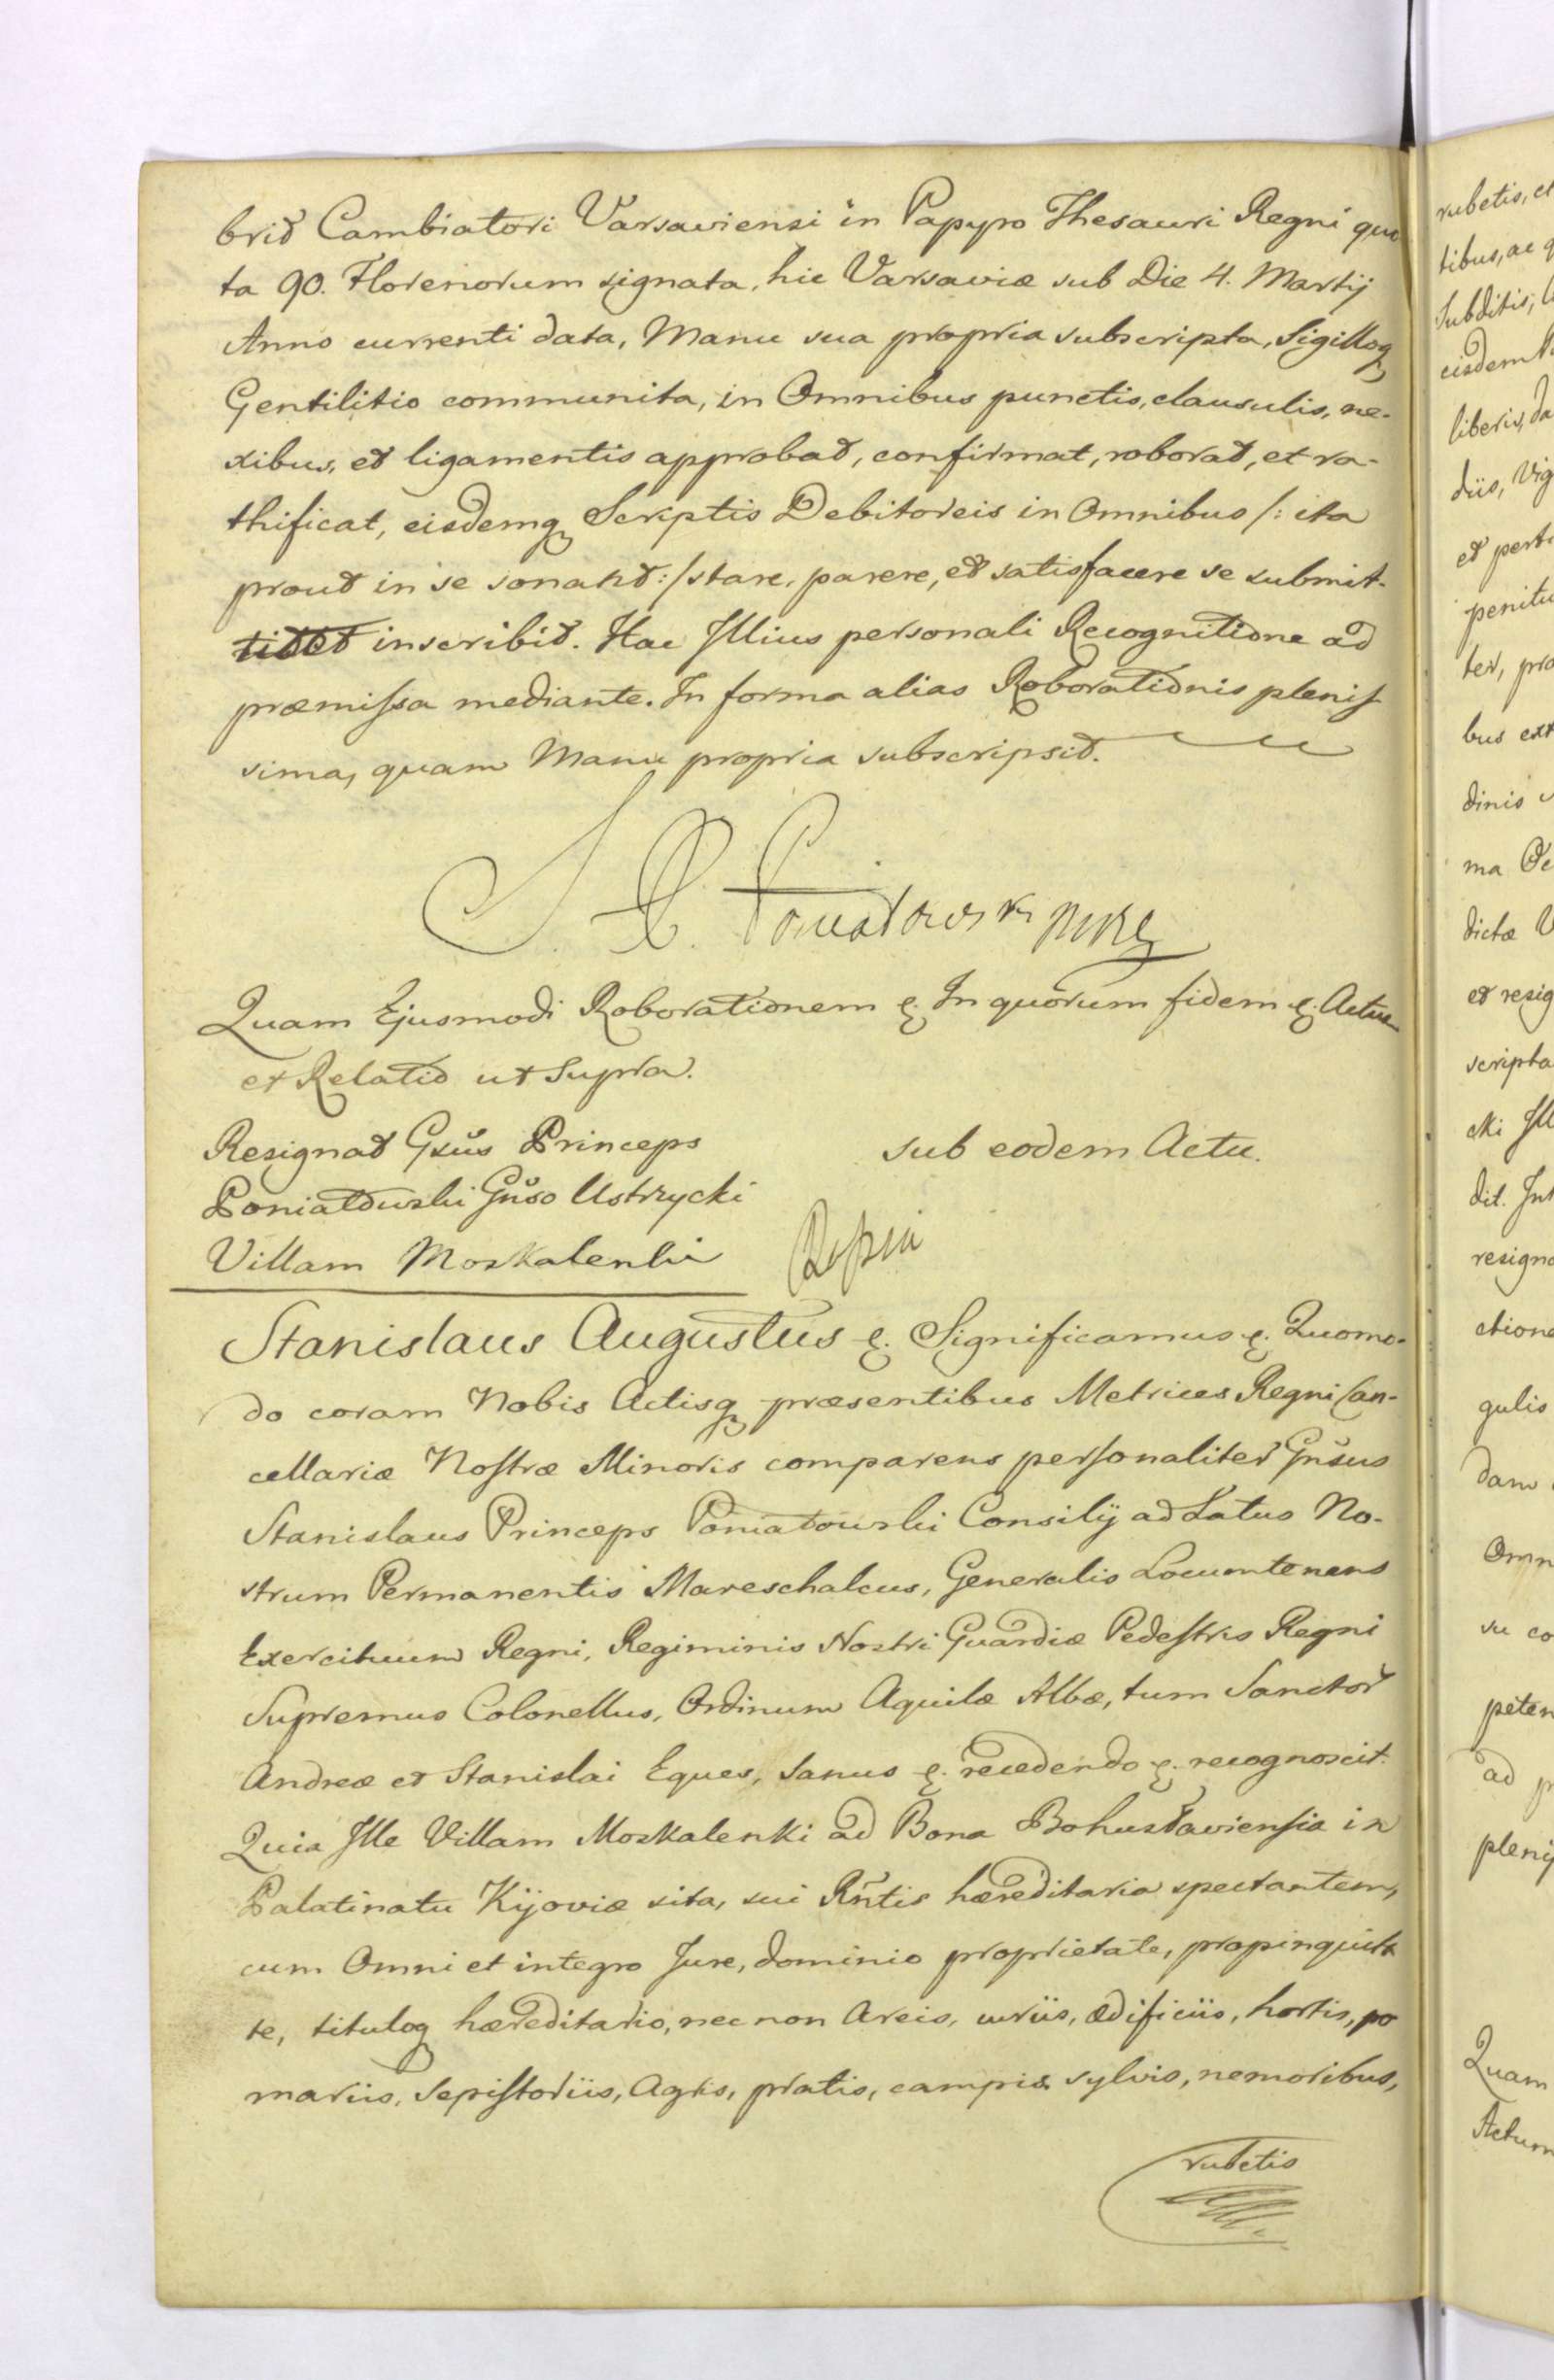 brit Cambiatori Varsaviensi in Papyro Thesauri Regni quo
ta 90. Florenorum signata, hic Varsaviæ sub Die 4. Martij
Anno currenti data, Manu sua propria subscripta, Sigilloq
Gentilitio communita, in Omnibus punctis, clausulis, ne-
xibus, et ligamentis approbat, confirmat, roborat, et ra-
thificat, eisdemq Scriptis Debitoreis in Omnibus /: ita
prout in se sonant :/ stare, parere, et satisfacere se submit-
inscribit. Hac Illius personali Recognitione ad
præmissa mediante. In forma alias Roborationis plenis
sima, quam Manu propria subscripsit.
S. P. Poniatowski mpg
Quam Ejusmodi Roborationem &. In quorum fidem &. Actum
et Relatio ut Supra.
Resignat Gnsus Princeps
Poniatowski Gnso Ustrzycki
Villam Moskalenki
sub eodem Actu.
Stanislaus Augustus &. Significamus &. Quomo-
do coram Nobis Actisq præsentibus Metrices Regni Can-
cellariæ Nostræ Minoris comparens personaliter Gnsus
Stanislaus Princeps Poniatowski Consilij ad Latus No-
strum Permanentis Mareschalcus, Generalis Locumtenens
Exercituum Regni, Regiminis Nostri Guardiæ Pedestris Regni
Supremus Colonellus, Ordinum Aquilæ Albæ, tum Sanctor
Andreæ et Stanislai Eques, sanus &. recedendo &. recognoscit.
Quia Ille Villam Moskalenki ad Bona Bohuslaviensia in
Palatinatu Kijoviæ sita, sui Rntis hæreditaria spectantem,
cum Omni et integro Jure, dominio proprietate, propinquita
te, tituloq hæreditario, nec non Areis, curiis, ædificiis, hortis, po
mariis, Sepistoriis, Agris, pratis, campis sylvis, nemoribus,
rubetis
rubetis, et
tibus, ac q
Subditis,
eisdem
liberis, da
diis, Vig
et perti
penitu
ter, pro
bus ext
dinis
ma
dictæ V
et resig
scripta
cki Ill
dit. Int
resigna
ctione
gulis
dam
Omn
su co
peten
ad p
pleni
Quam
Actum